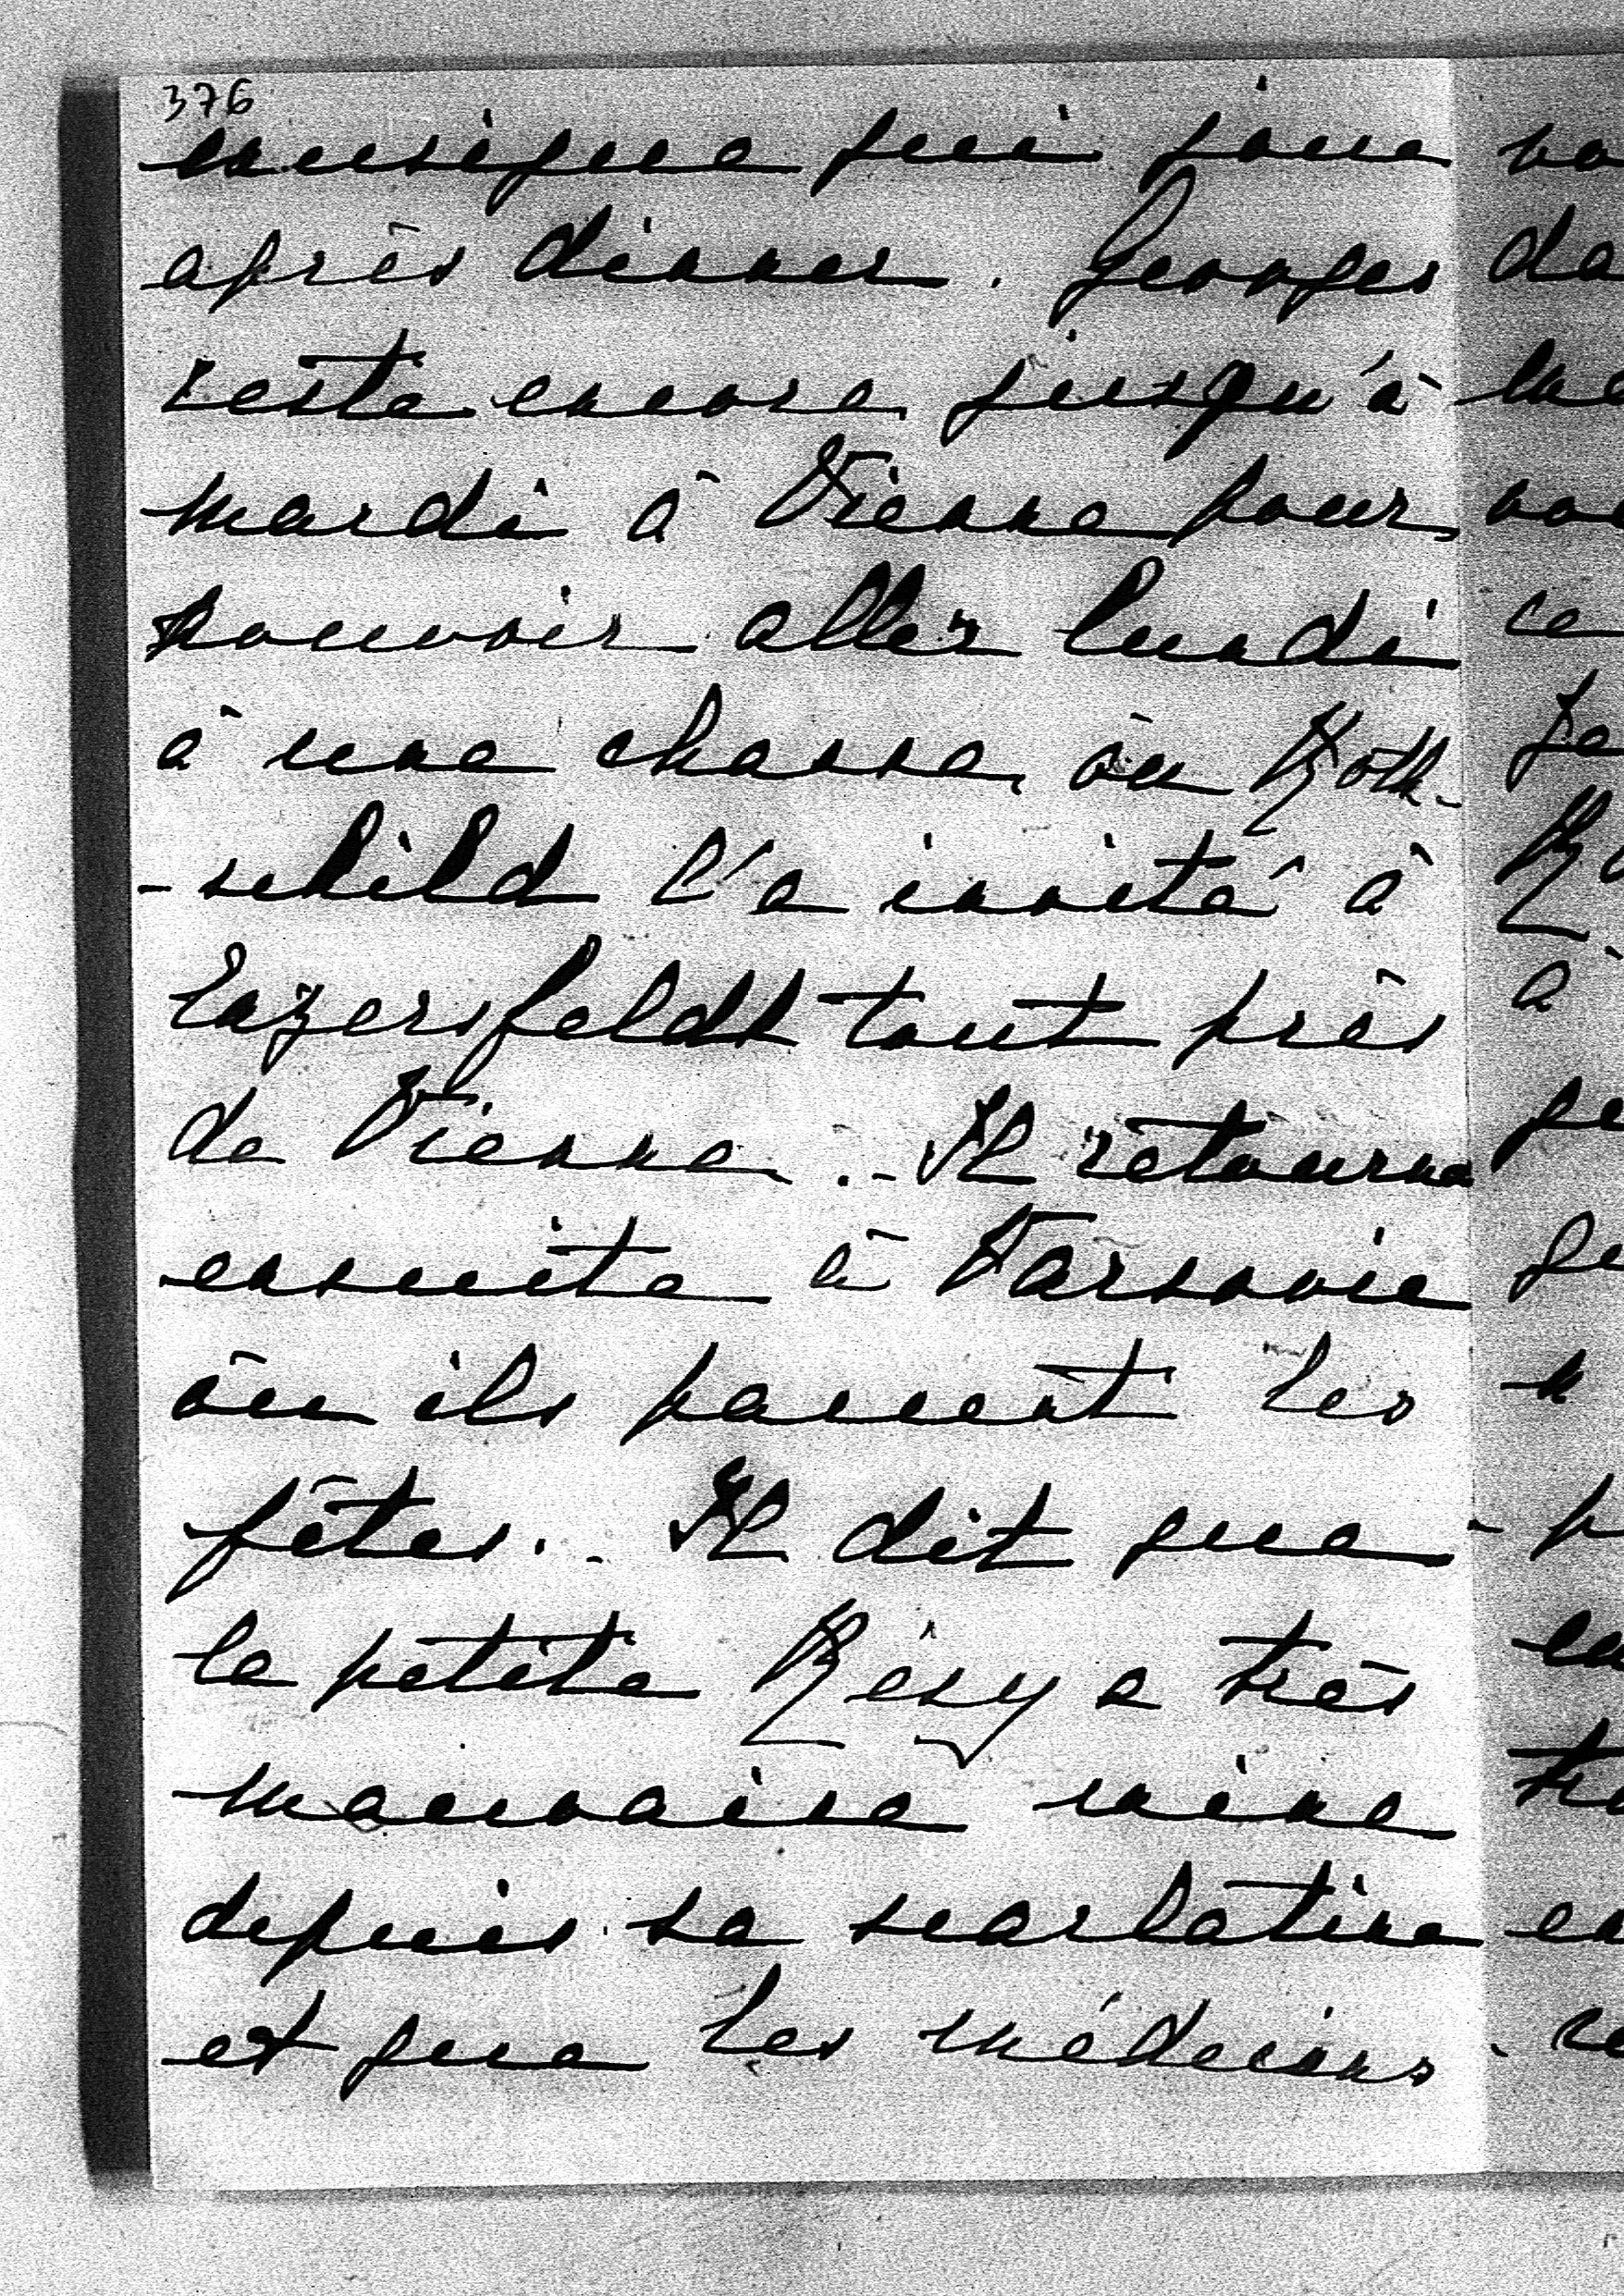 376
musique qui joue
après dinner. Georges
reste encore jusqu'à
mardi à Vienne pour
pouvoir aller lundi
à une chasse où Roth-
-schild l'a invité à
Lazersfeldt tout près
de Vienne.- Il retourne
ensuite à Varsovie
où ils passent les
fêtes.- Il dit que
la petite Résy a très
mauvaise mine
depuis sa scarlatine
et que les médecins